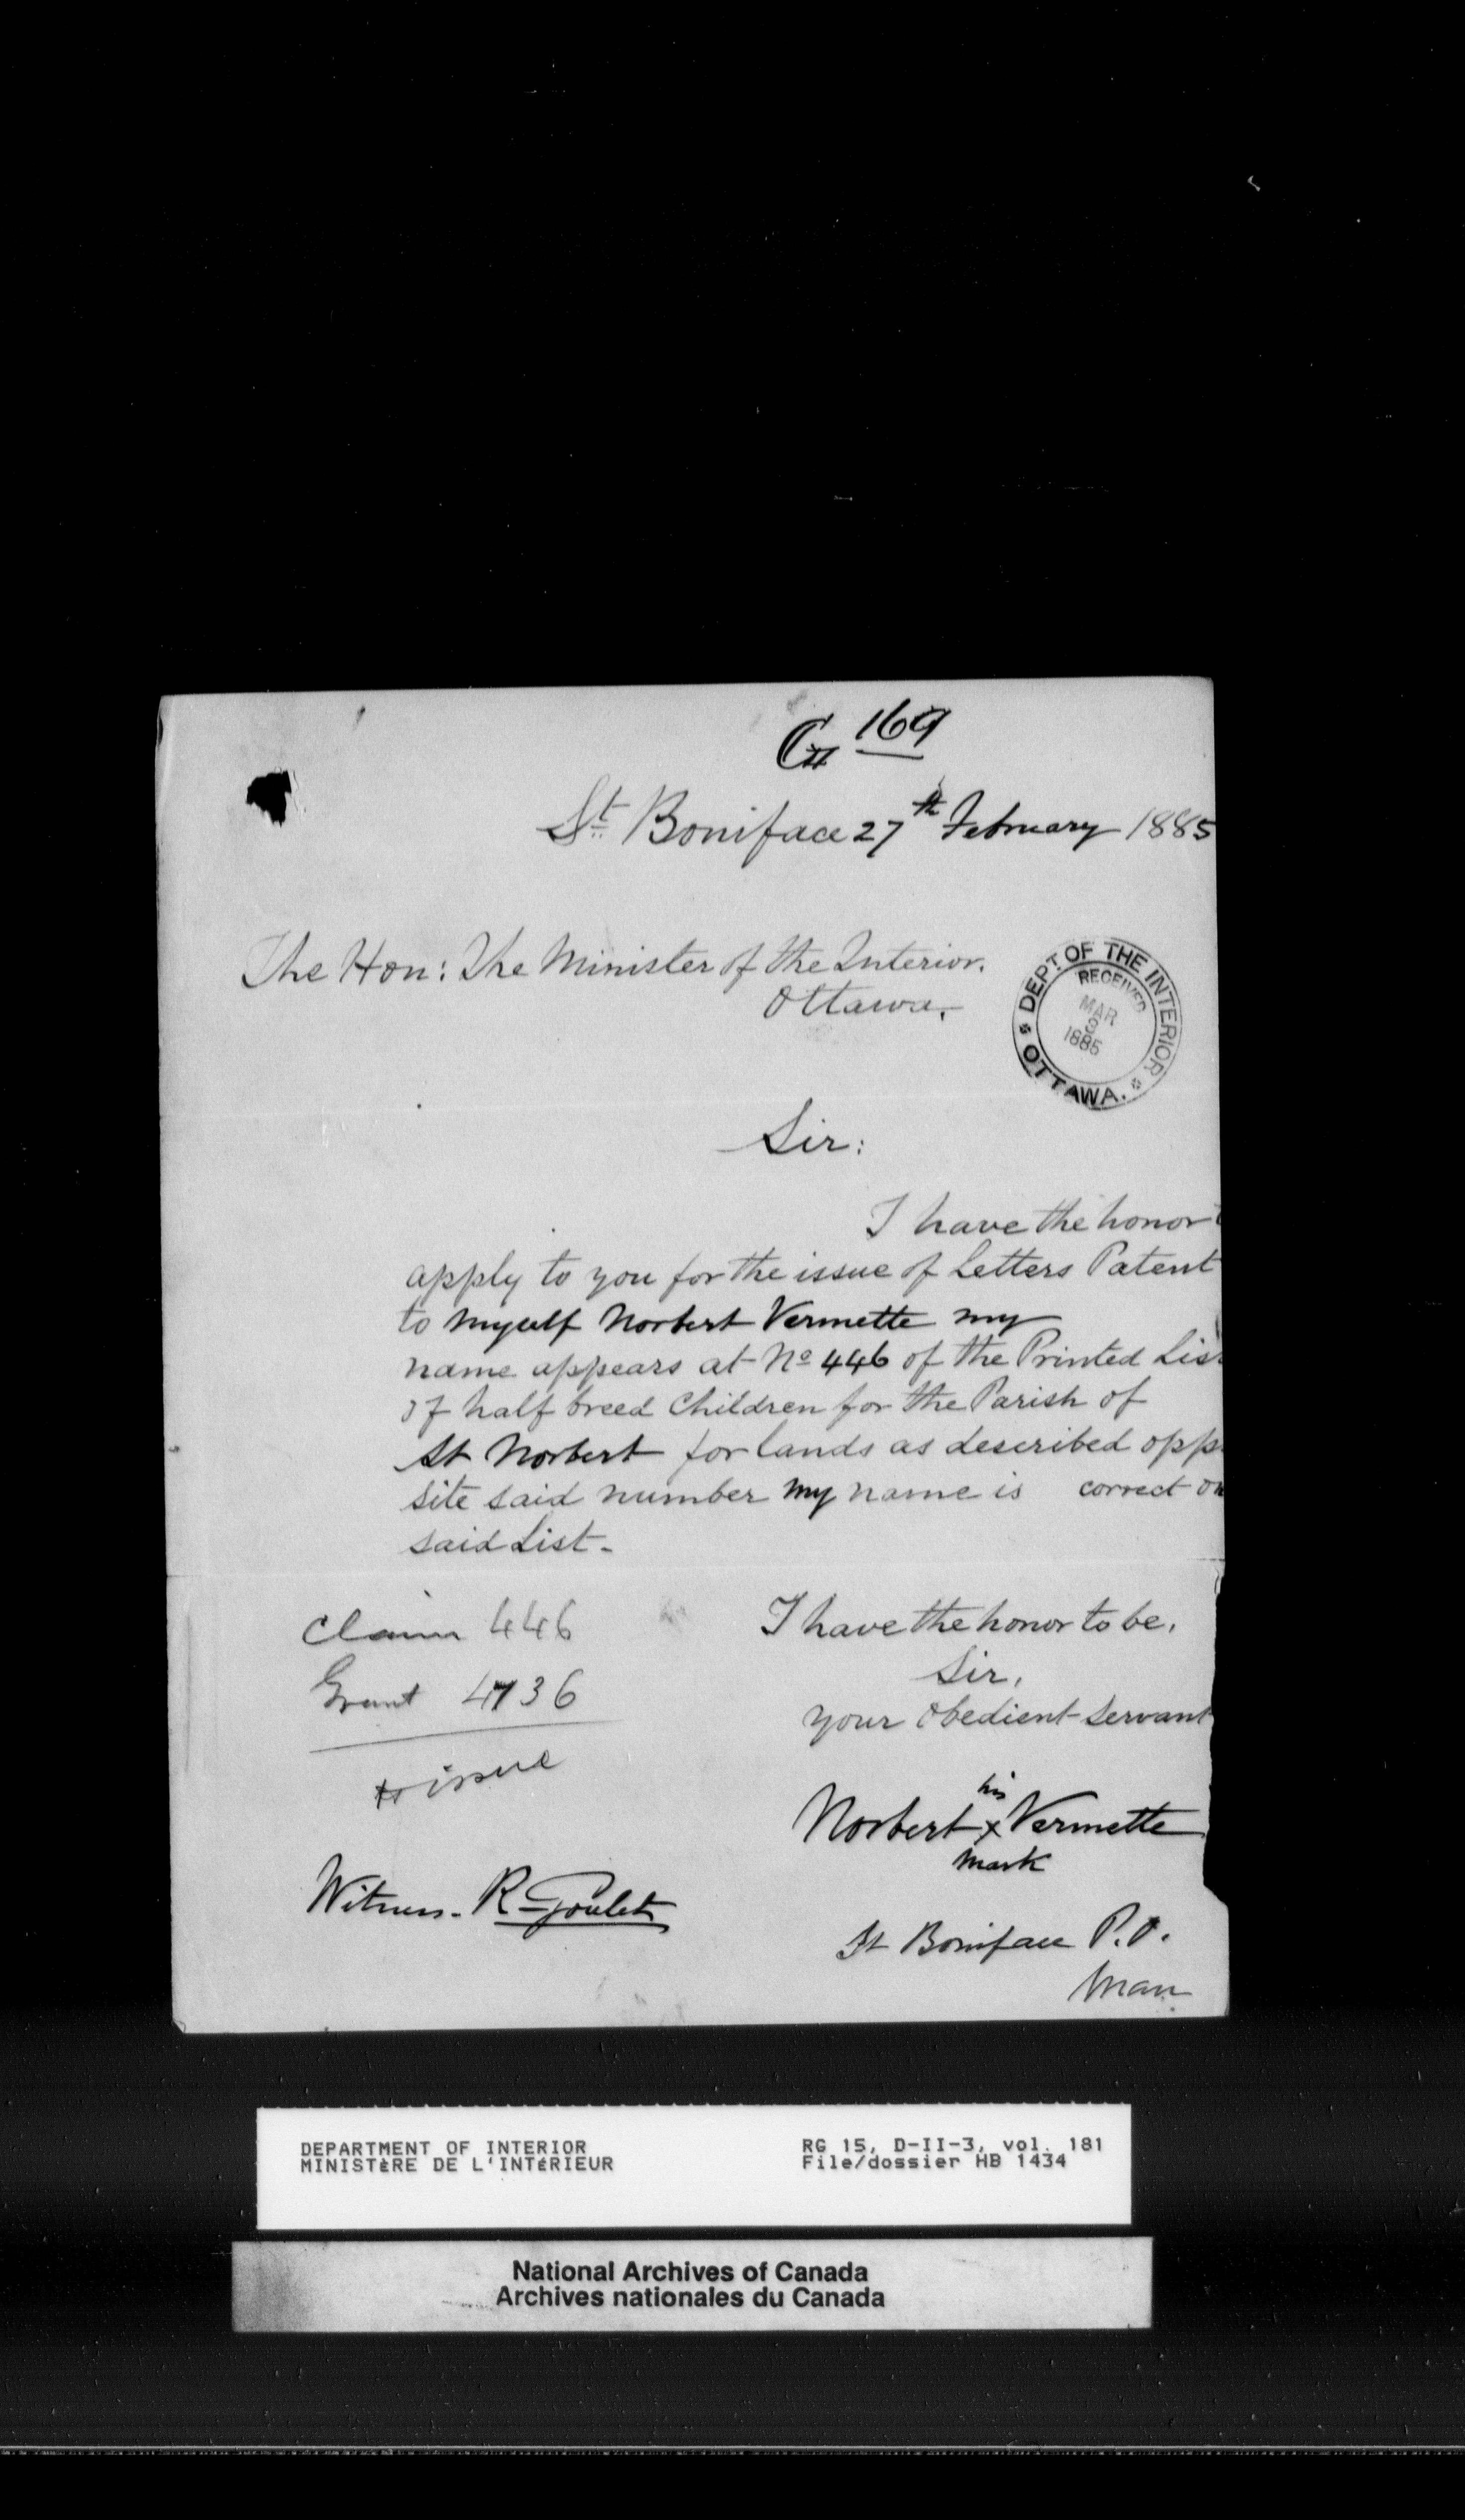 169
St Boniface 27th February 1885
The Hon: The Minister of the Interior.
Ottawa.
DEPT. OF THE INTERIOR
RECEIVED
MAR
3
1885
OTTAWA.
Sir:
I have the honor
apply to you for the issue of Letters Patent
to myself Norbert Vermette my
name appears at No 446 of the Printed Lis
of half breed Children for the Parish of
St Norbert for lands as described oppo
site said number my name is correct on
said List.
Claim 446
Grant 4736
to issue
I have the honor to be,
Sir,
your obedient servant
his
Norbert x Vermette
mark
Witness. R Goulet
St Boniface P.O.
Man.
DEPARTMENT OF INTERIOR
MINISTÈRE DE L'INTÉRIEUR
RG 15, D-II-3, vol. 181
File/dossier HB 1434
National Archives of Canada
Archives nationales du Canada